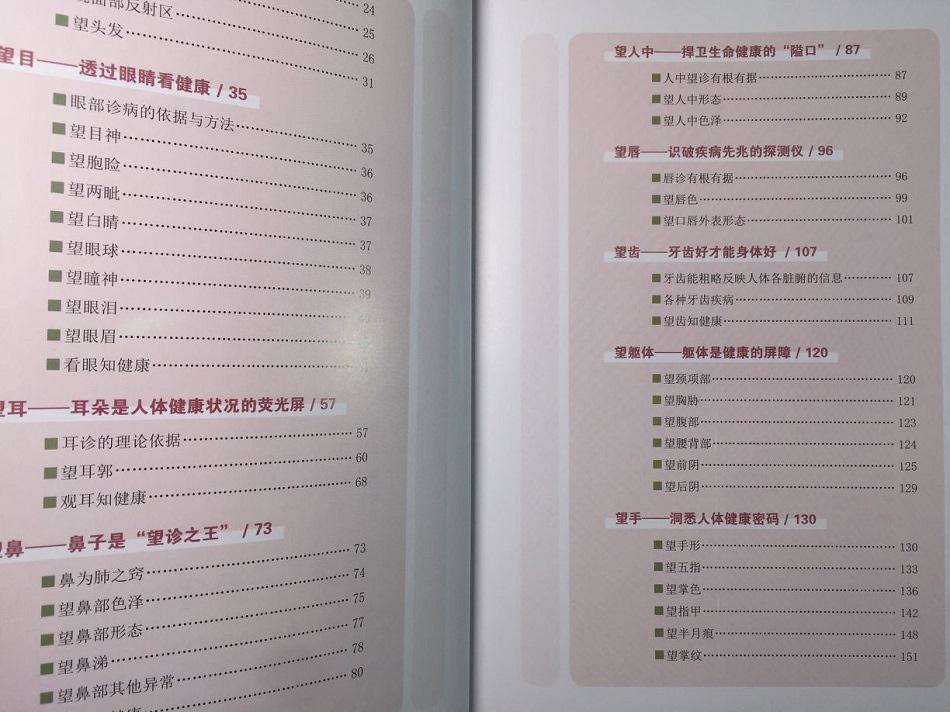 24
25
面部反射区 26
望头发 31
望目——透过眼睛看健康 / 35
眼部诊病的依据与方法 35
望目神 36
望胞睑 36
望两眦 37
望白睛 37
望眼球 38
望瞳神 39
望眼泪
望眼眉
看眼知健康
望耳——耳朵是人体健康状况的荧光屏 / 57
耳诊的理论依据 57
望耳郭 60
观耳知健康 68
望鼻——鼻子是“望诊之王” / 73
鼻为肺之窍 73
望鼻部色泽 74
望鼻部形态 75
望鼻涕 77
望鼻部其他异常 78
80
望人中——捍卫生命健康的“隘口” / 87
人中望诊有根有据 87
望人中形态 89
望人中色泽 92
望唇——识破疾病先兆的探测仪 / 96
唇诊有根有据 96
望唇色 99
望口唇外表形态 101
望齿——牙齿好才能身体好 / 107
牙齿能粗略反映人体各脏腑的信息 107
各种牙齿疾病 109
望齿知健康 111
望躯体——躯体是健康的屏障 / 120
望颈项部 120
望胸胁 121
望腹部 123
望腰背部 124
望前阴 125
望后阴 129
望手——洞悉人体健康密码 / 130
望手形 130
望五指 133
望掌色 136
望指甲 142
望半月痕 148
望掌纹 151